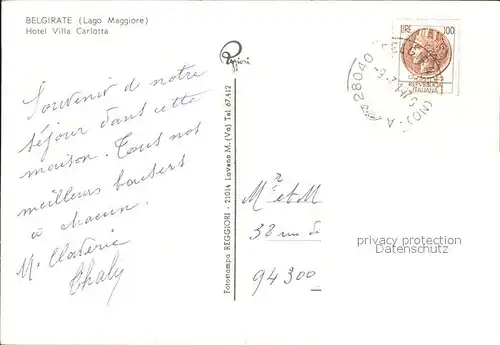 BELGIRATE (Lago Maggiore)
Hotel Villa Carlotta
Souvenir de notre
séjour dans cette
maison. Tous nos
meilleurs baisers
à chacun.
M. Claterie
Chaly
Reggiori
Fotostampa REGGIORI - 21014 Laveno M. (Va) Tel 67.412
LIRE 100
REPVBBLICA
ITALIANA
28040
(NO) - A
Mr et M
38 rue de
94300
privacy protection
Datenschutz